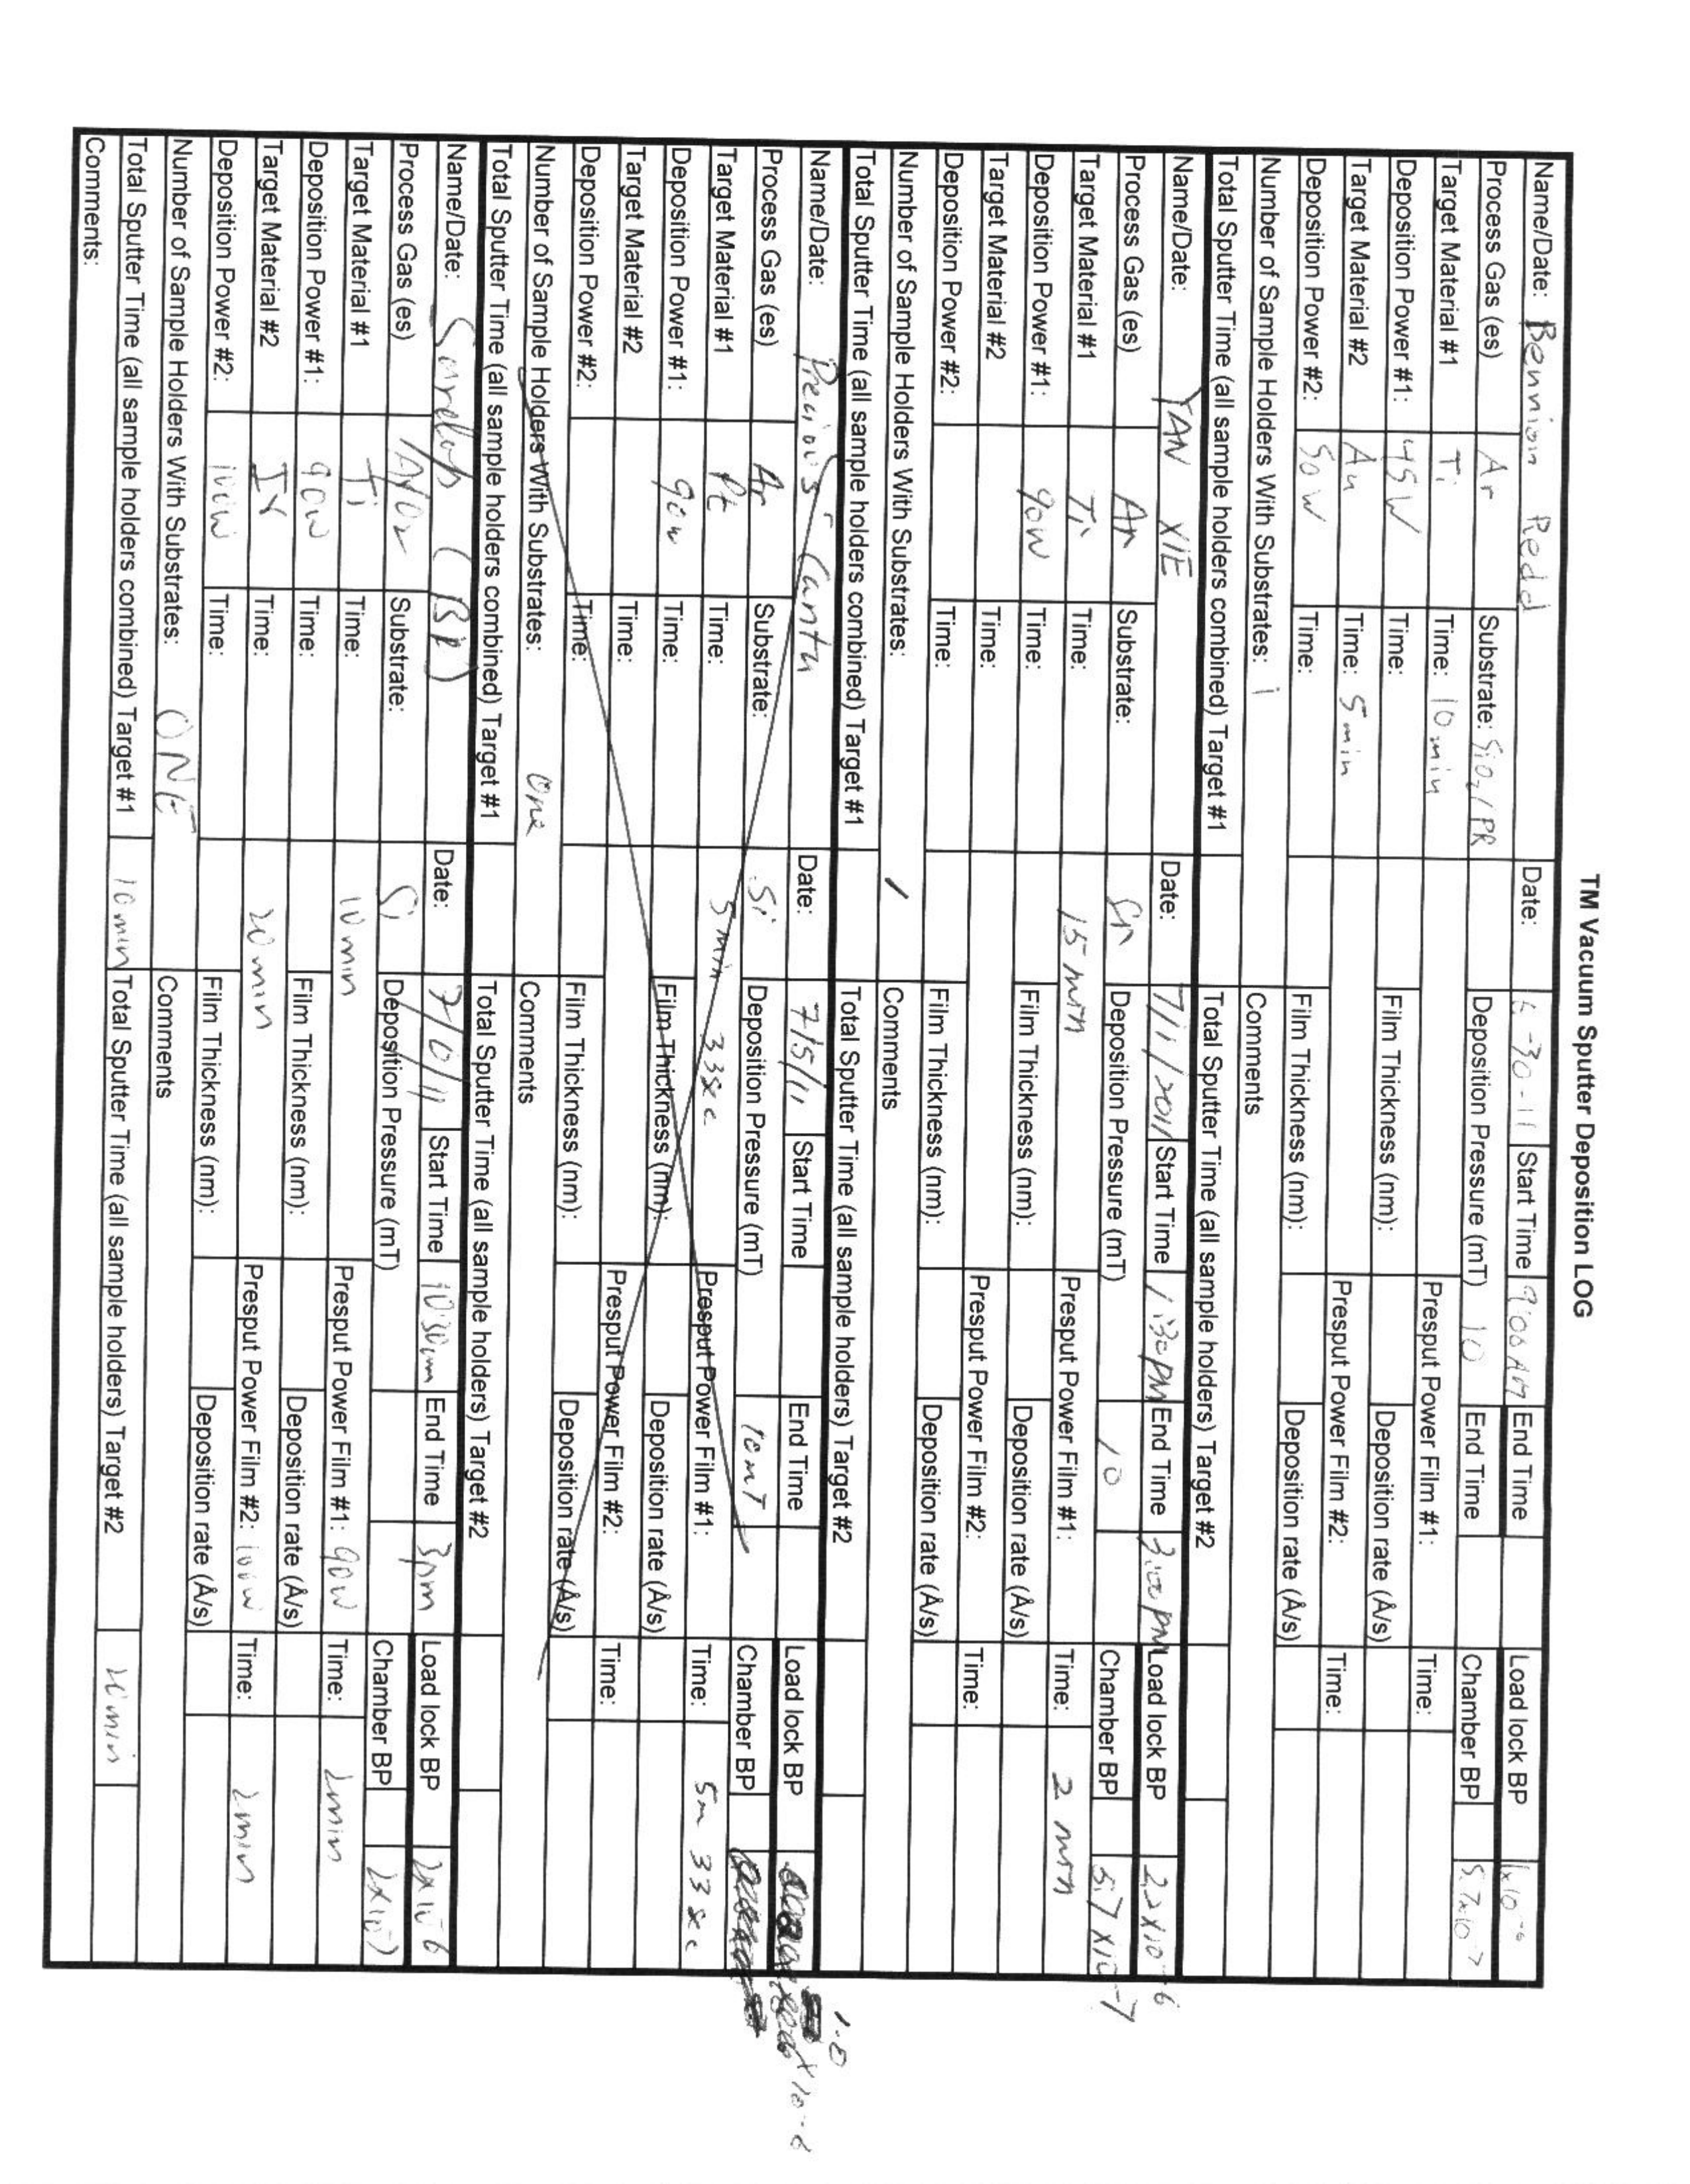 TM Vacuum Sputter Deposition LOG
Name/Date: Bennion Redd Date: 6-30-11 Start Time 9:00 AM End Time Load lock BP
Process Gas (es) Ar Substrate: SiO2/PR Deposition Pressure (mT) 10 End Time Chamber BP 5.7x10-7
Target Material #1 Ti Time: 10 min Presput Power Film #1: Time:
Deposition Power #1: 45W Time: Film Thickness (nm): Deposition rate (Å/s)
Target Material #2 Au Time: 5min Presput Power Film #2: Time:
Deposition Power #2: 50W Time: Film Thickness (nm): Deposition rate (Å/s)
Number of Sample Holders With Substrates: 1 Comments
Total Sputter Time (all sample holders combined) Target #1 Total Sputter Time (all sample holders) Target #2
Name/Date: YAN XIE Date: 7/1/2011 Start Time 1:30pm End Time 3:00pm Load lock BP 2.2x10-6
Process Gas (es) Ar Substrate: Deposition Pressure (mT) 10 Chamber BP 5.7x10-7
Target Material #1 Ti Time: 15 min Presput Power Film #1: Time: 2 min
Deposition Power #1: 90W Time: Film Thickness (nm): Deposition rate (Å/s)
Target Material #2 Time: Presput Power Film #2: Time:
Deposition Power #2: Time: Film Thickness (nm): Deposition rate (Å/s)
Number of Sample Holders With Substrates: 1 Comments
Total Sputter Time (all sample holders combined) Target #1 Total Sputter Time (all sample holders) Target #2
Name/Date: Precious Cantu Date: 7/5/11 Start Time End Time Load lock BP 1.0 x10-6
Process Gas (es) Ar Substrate: Si Deposition Pressure (mT) 10mT Chamber BP
Target Material #1 Pt Time: 5min 33sec Presput Power Film #1: Time: 5m 33sec
Deposition Power #1: 90W Time: Film Thickness (nm): Deposition rate (Å/s)
Target Material #2 Time: Presput Power Film #2: Time:
Deposition Power #2: Time: Film Thickness (nm): Deposition rate (Å/s)
Number of Sample Holders With Substrates: One Comments
Total Sputter Time (all sample holders combined) Target #1 Total Sputter Time (all sample holders) Target #2
Name/Date: (BR) Date: Start Time 10:30am End Time 3pm Load lock BP 2x10-6
Process Gas (es) Ar/O2 Substrate: Si Deposition Pressure (mT) Chamber BP 2x10-7
Target Material #1 Ti Time: 10min Presput Power Film #1: 90W Time: 2min
Deposition Power #1: 90W Time: Film Thickness (nm): Deposition rate (Å/s)
Target Material #2 Ir Time: 20min Presput Power Film #2: 100W Time: 2min
Deposition Power #2: 100W Time: Film Thickness (nm): Deposition rate (Å/s)
Number of Sample Holders With Substrates: ONE Comments
Total Sputter Time (all sample holders combined) Target #1 10min Total Sputter Time (all sample holders) Target #2 20min
Comments: